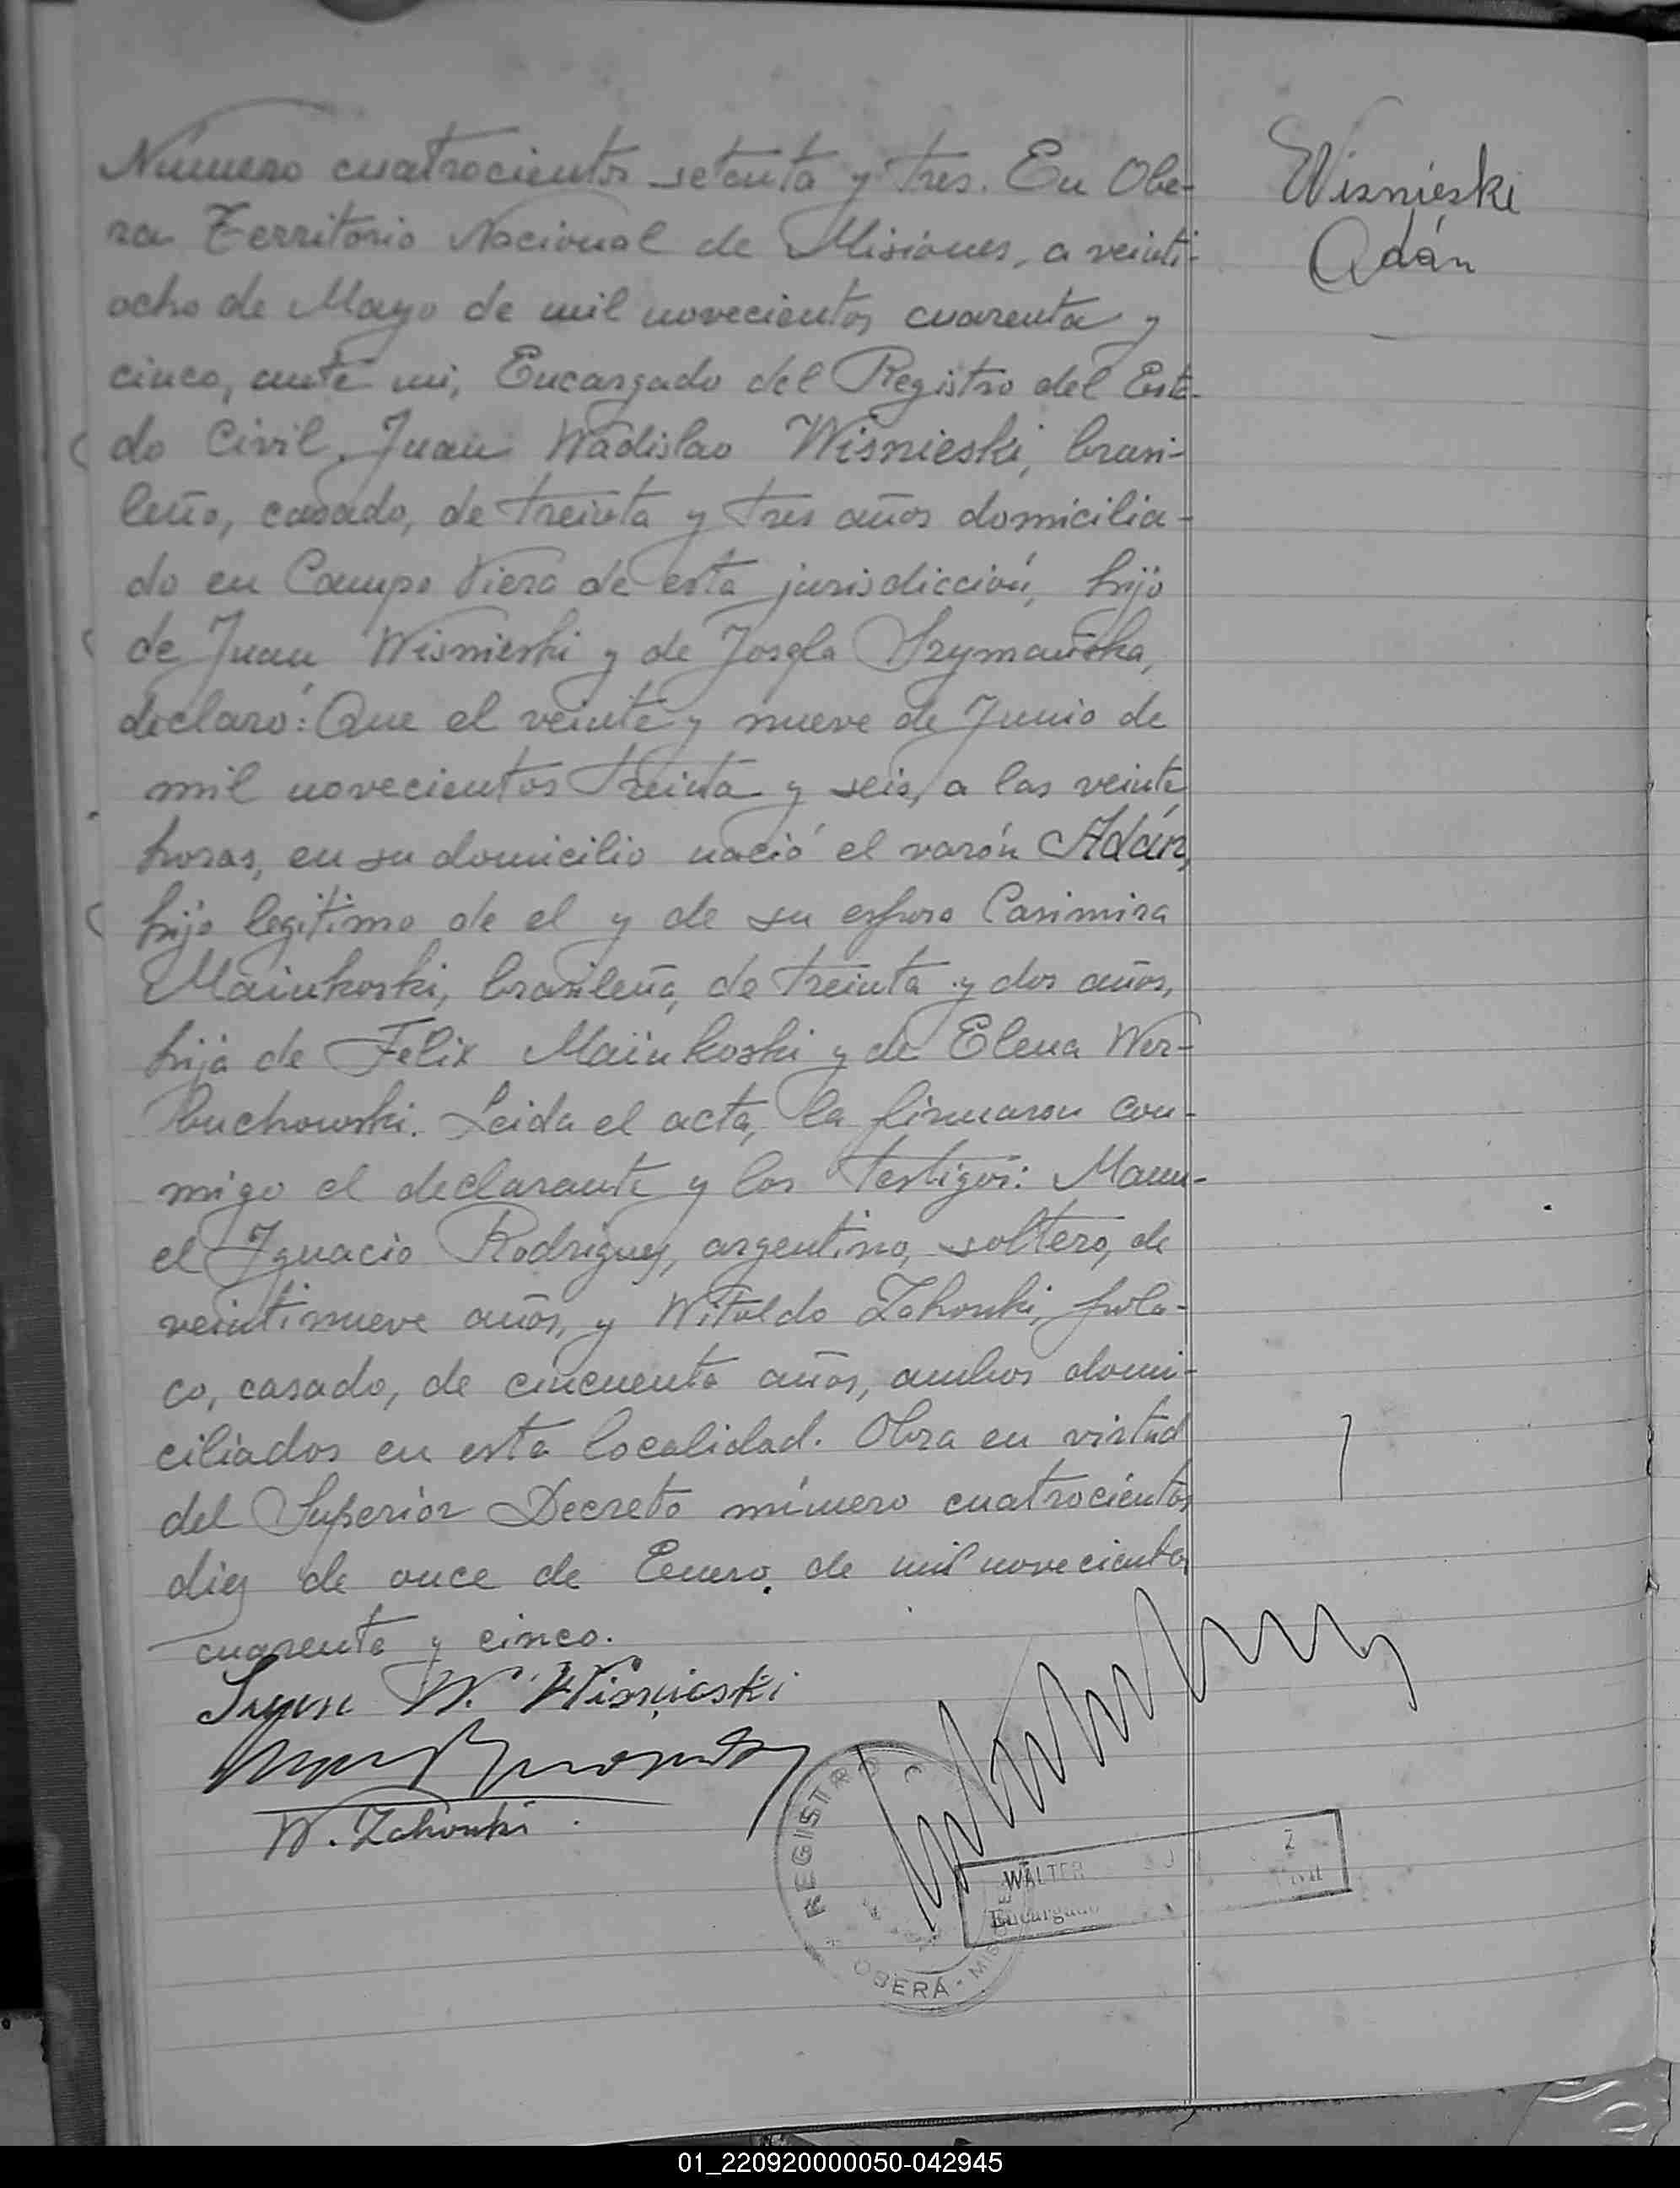 Número cuatrocientos setenta y tres. En Obe-
ra Territorio Nacional de Misiones, a veinti-
ocho de Mayo de mil novecientos cuarenta y
cinco, ante mi, Encargado del Registro del Esta-
do Civil, Juan Wadislao Wisnieski, brasi-
leño, casado, de treinta y tres años domicilia-
do en Campo Viera de esta jurisdicción, hijo
de Juan Wisnieski y de Josefa Szymańska,
declaró: Que el veinte y nueve de Junio de
mil novecientos treinta y seis, a las veinte
horas, en su domicilio nació el varón Adán,
hijo legítimo de el y de su esposa Casimira
Mainkoski, brasileña, de treinta y dos años,
hija de Felix Mainkoski y de Elena Wer-
buchowski. Leida el acta, la firmaron con-
migo el declarante y los testigos: Manu-
el Ignacio Rodriguez, argentino, soltero, de
veintinueve años, y Witoldo Zahouski, pola-
co, casado, de cincuenta años, ambos domi-
ciliados en esta localidad. Obra en virtud
del Superior Decreto número cuatrocientos
diez de once de Enero de mil novecientos
cuarenta y cinco.
Wisnieski
Adán
Juan W. Wisnieski
W. Zahouski
REGISTRO
OBERÁ - MISIONES
WALTER
Encargado
01_220920000050-042945